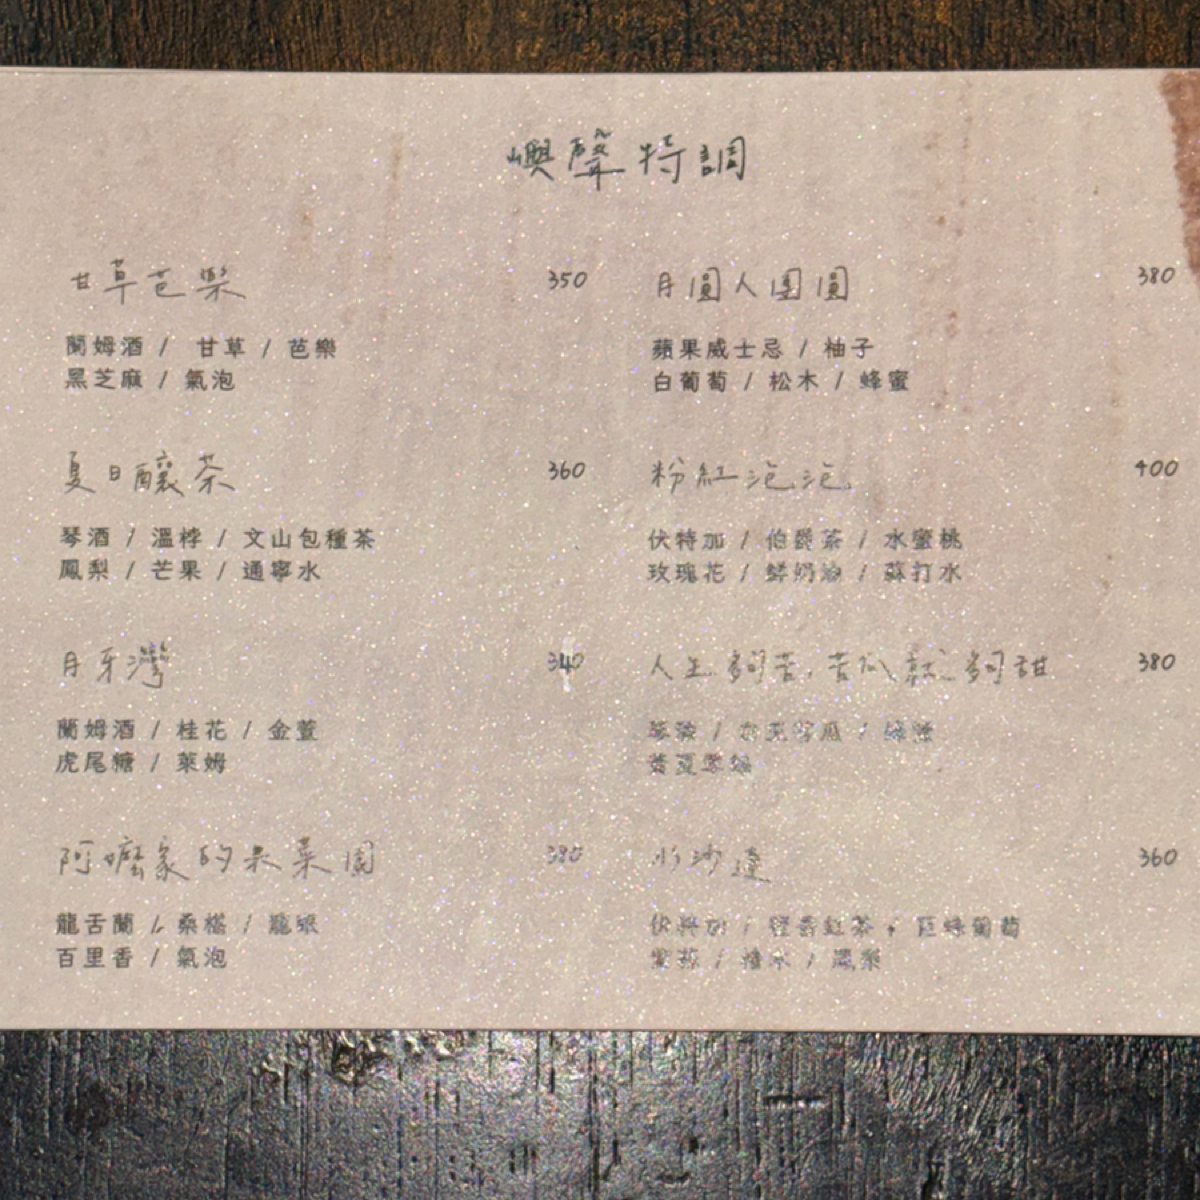 嶼聲特調
甘草芭樂 350
蘭姆酒 / 甘草 / 芭樂
黑芝麻 / 氣泡
夏日釀茶 360
琴酒 / 溫桲 / 文山包種茶
鳳梨 / 芒果 / 通寧水
月牙灣 340
蘭姆酒 / 桂花 / 金萱
虎尾糖 / 萊姆
阿嬤家的果菜園 380
龍舌蘭 / 桑椹 / 龍眼
百里香 / 氣泡
月圓人團圓 380
蘋果威士忌 / 柚子
白葡萄 / 松木 / 蜂蜜
粉紅泡泡 400
伏特加 / 伯爵茶 / 水蜜桃
玫瑰花 / 鮮奶油 / 蘇打水
人生夠苦,苦瓜就夠甜 380
360
伏特加 / 蜜香紅茶 / 巨峰葡萄